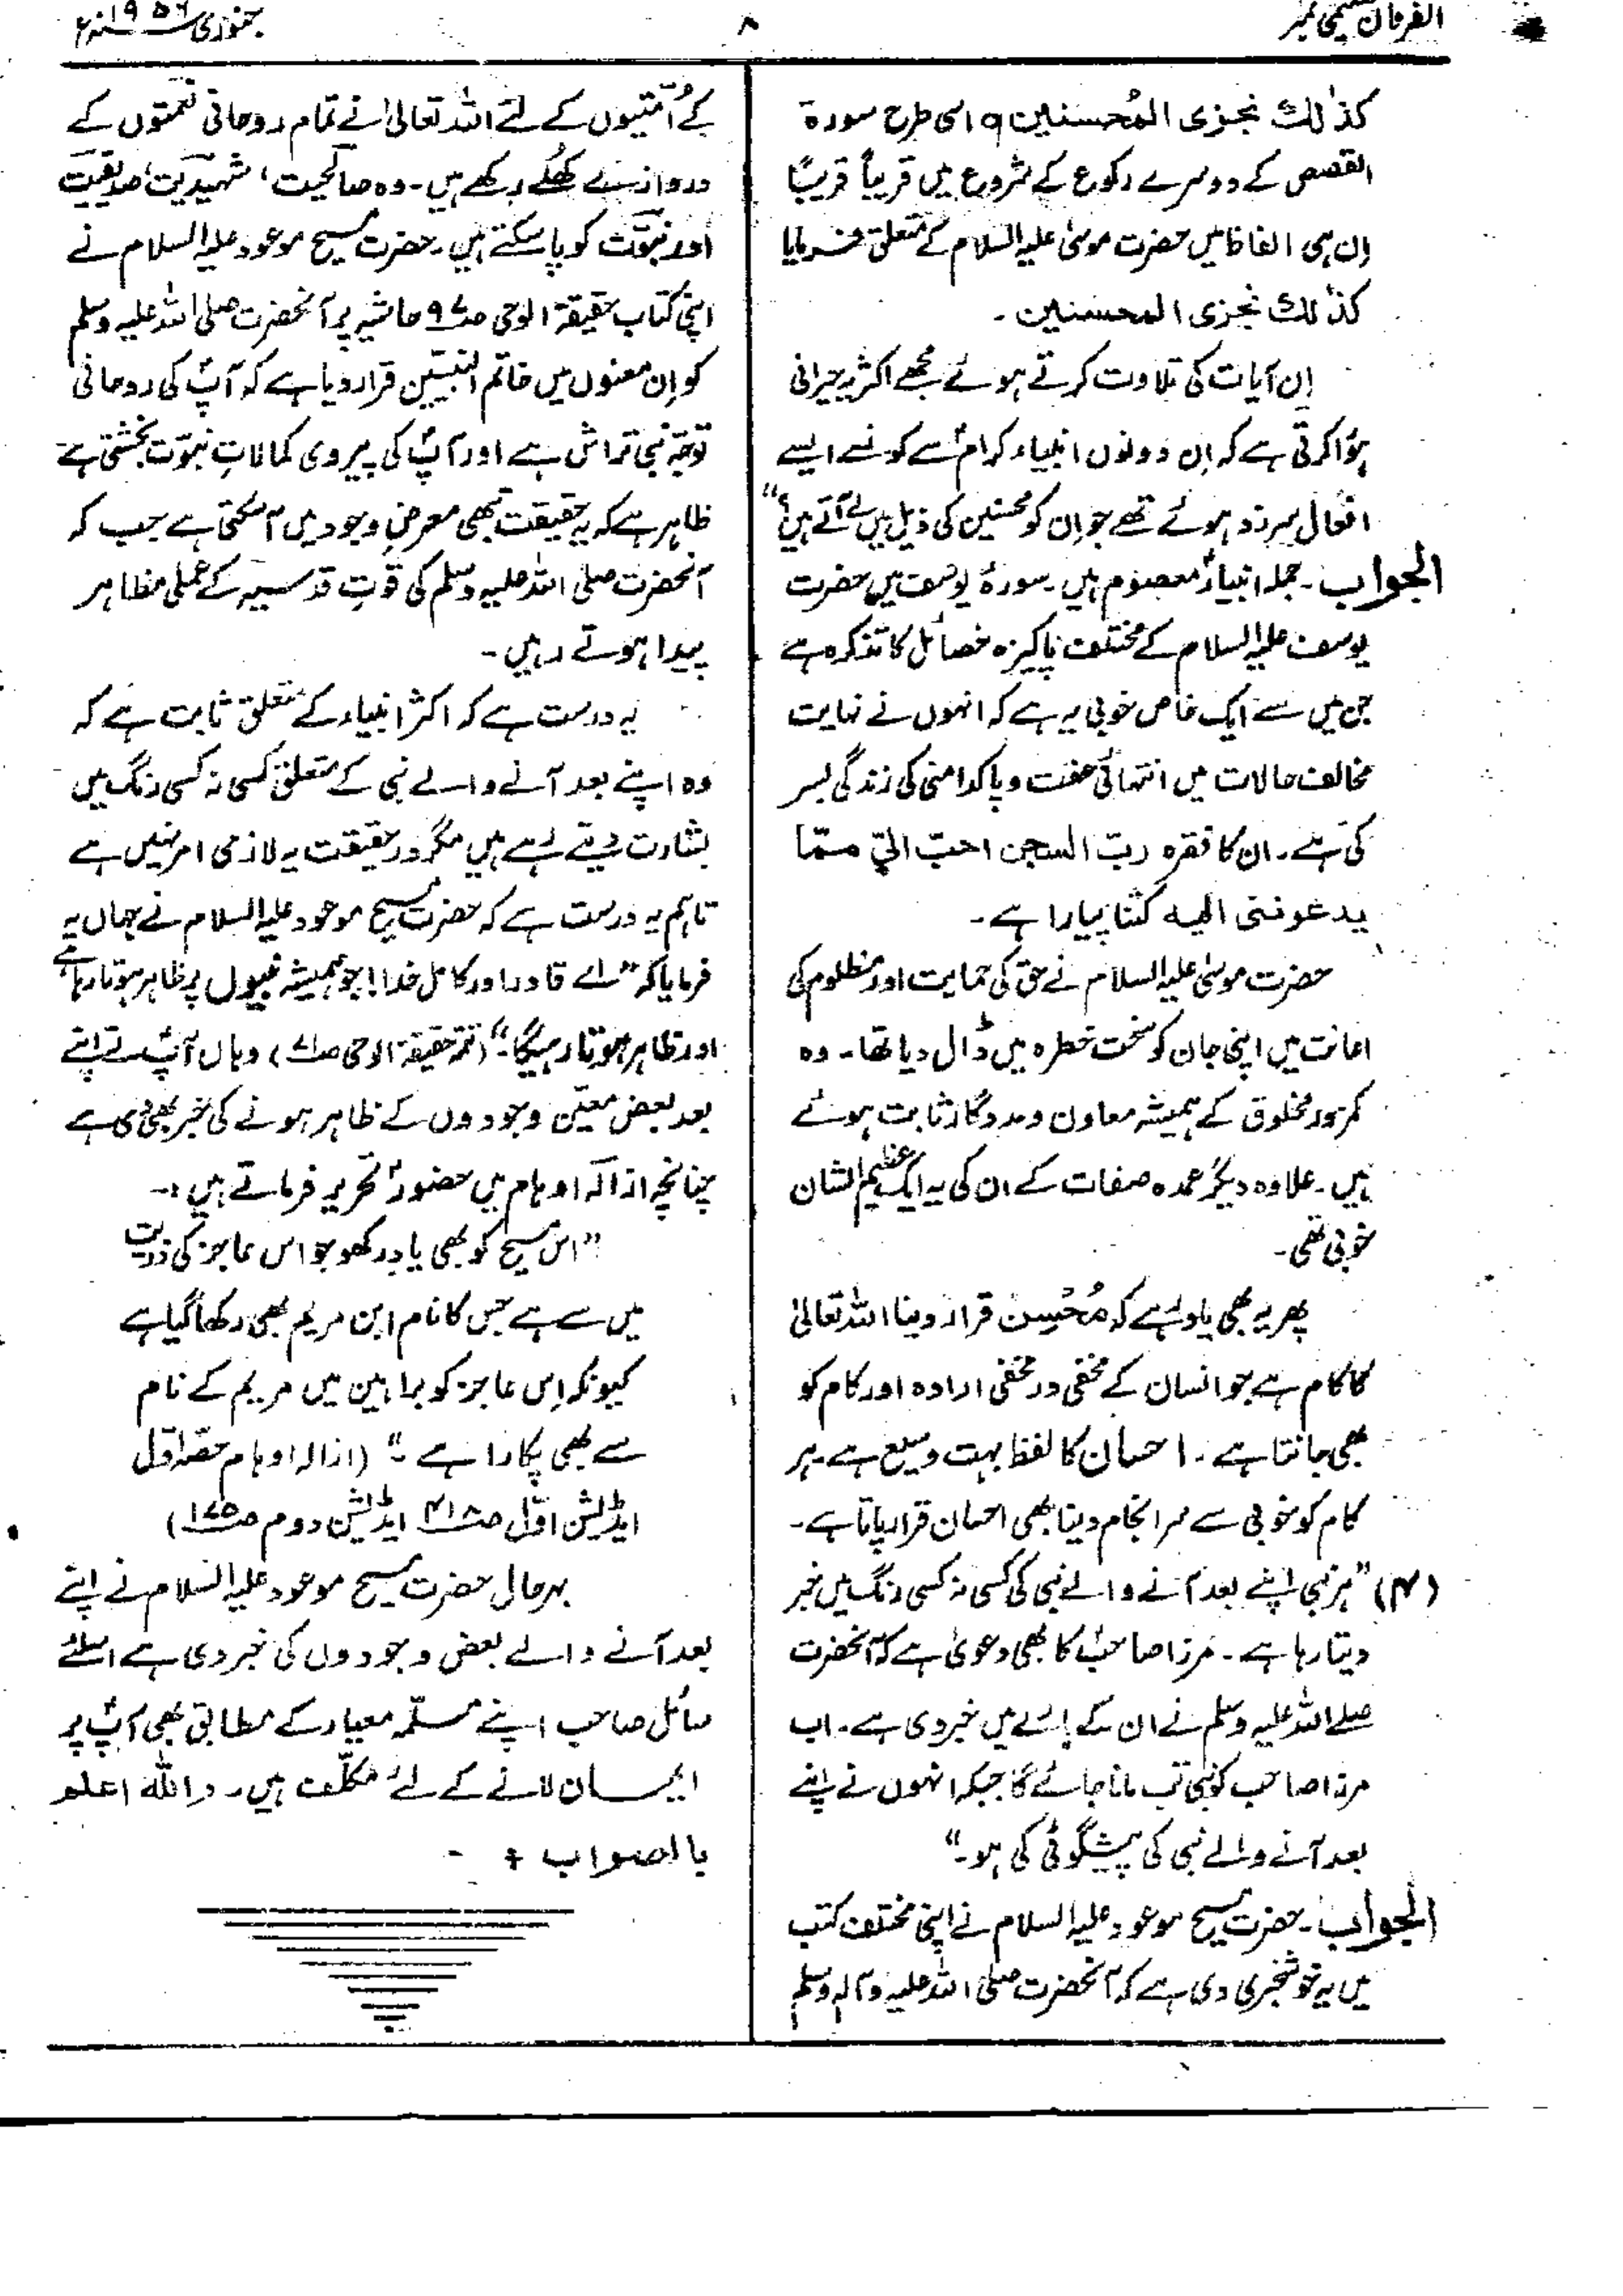 الفرقان سیمی نمبر
۸
جنوری سنہ ۱۹۵۶ء
کذٰلك نجزی المُحسنین ۹ اسی طرح سورۃ
القصص کے دوسرے رکوع کے شروع میں قریباً قریباً
اِن ہی الفاظ میں حضرت موسیٰ علیہ السلام کے متعلق فرمایا
کذٰلك نجزی المحسنین ۔
اِن آیات کی تلاوت کرتے ہوئے مجھے اکثر یہ حیرانی
ہؤا کرتی ہے کہ اِن دونوں انبیاء کرامؑ سے کونسے ایسے
افعال سرزد ہوئے تھے جو اِن کو محسنین کی ذیل میں لے آتے ہیں؟“
الجواب ۔ جملہ انبیاءؑ معصوم ہیں۔ سورۂ یوسف میں حضرت
یوسف علیہ السلام کے مختلف پاکیزہ خصائل کا تذکرہ ہے
جن میں سے ایک خاص خوبی یہ ہے کہ انہوں نے نہایت
مخالف حالات میں انتہائی عفت و پاکدامنی کی زندگی بسر
کی ہے۔ ان کا فقرہ ربّ السجن احبّ الیّ ممّا
یدعوننی الیه کتنا پیارا ہے۔
حضرت موسیٰ علیہ السلام نے حق کی حمایت اور مظلوم کی
اعانت میں اپنی جان کو سخت خطرہ میں ڈال دیا تھا۔ وہ
کمزور مخلوق کے ہمیشہ معاون و مددگار ثابت ہوئے
ہیں۔ علاوہ دیگر عمدہ صفات کے ان کی یہ ایک عظیم الشان
خوبی تھی۔
پھر یہ بھی یاد رہے کہ مُحْسِن قرار دینا اللہ تعالیٰ
کا کام ہے جو انسان کے مخفی در مخفی ارادہ اور کام کو
بھی جانتا ہے۔ احسان کا لفظ بہت وسیع ہے۔ ہر
کام کو خوبی سے سرانجام دینا بھی احسان قرار پاتا ہے۔
(۴) ”ہر نبی اپنے بعد آنے والے نبی کی کسی نہ کسی رنگ میں خبر
دیتا رہا ہے۔ مرزا صاحبؑ کا بھی دعویٰ ہے کہ آنحضرت
صلے اللہ علیہ وسلم نے ان کے بارے میں خبر دی ہے۔ اب
مرزا صاحب کو نبی تب مانا جائے گا جبکہ انہوں نے اپنے
بعد آنے والے نبی کی پیشگوئی کی ہو۔“
الجواب ۔ حضرت مسیح موعود علیہ السلام نے اپنی مختلف کتب
میں یہ خوشخبری دی ہے کہ آنحضرت صلی اللہ علیہ وآلہ وسلم
کے اُمّتیوں کے لئے اللہ تعالیٰ نے تمام روحانی نعمتوں کے
دروازے کھُلے رکھے ہیں۔ وہ صالحیت، شہیدیت، صدیقیت
اور نبوّت کو پا سکتے ہیں۔ حضرت مسیح موعود علیہ السلام نے
اپنی کتاب حقیقۃ الوحی صـ۹۷ حاشیہ پر آنحضرت صلی اللہ علیہ وسلم
کو اِن معنوں میں خاتم النبیّین قرار دیا ہے کہ آپؐ کی روحانی
توجّہ نبی تراش ہے اور آپؐ کی پیروی کمالاتِ نبوّت بخشتی ہے
ظاہر ہے کہ یہ حقیقت تبھی معرضِ وجود میں آسکتی ہے جب کہ
آنحضرت صلی اللہ علیہ وسلم کی قوّتِ قدسیہ کے عملی مظاہر
پیدا ہوتے رہیں۔
یہ درست ہے کہ اکثر انبیاء کے متعلق ثابت ہے کہ
وہ اپنے بعد آنے والے نبی کے متعلق کسی نہ کسی رنگ میں
بشارت دیتے رہے ہیں مگر درحقیقت یہ لازمی امر نہیں ہے
تاہم یہ درست ہے کہ حضرت مسیح موعود علیہ السلام نے جہاں یہ
فرمایا کہ ”اے قادر اور کامل خدا! جو ہمیشہ نبیوں پر ظاہر ہوتا رہا ہے
اور ظاہر ہوتا رہیگا۔“ (تتمہ حقیقۃ الوحی صـ) وہاں آپؑ نے اپنے
بعد بعض معیّن وجودوں کے ظاہر ہونے کی خبر بھی دی ہے
چنانچہ ازالہ اوہام میں حضورؑ تحریر فرماتے ہیں:-
”اس مسیح کو بھی یاد رکھو جو اس عاجز کی ذریت
میں سے ہے جس کا نام ابن مریم بھی رکھا گیا ہے
کیونکہ اِس عاجز کو براہین میں مریم کے نام
سے بھی پکارا ہے۔“ (ازالہ اوہام حصّہ اوّل
ایڈیشن اوّل صـ۴۱۸ ایڈیشن دوم صـ۱۷۵)
بہرحال حضرت مسیح موعود علیہ السلام نے اپنے
بعد آنے والے بعض وجودوں کی خبر دی ہے اسلئے
سائل صاحب اپنے مسلّمہ معیار کے مطابق بھی آپؑ پر
ایمان لانے کے لئے مکلّف ہیں۔ واللہ اعلم
بالصواب +